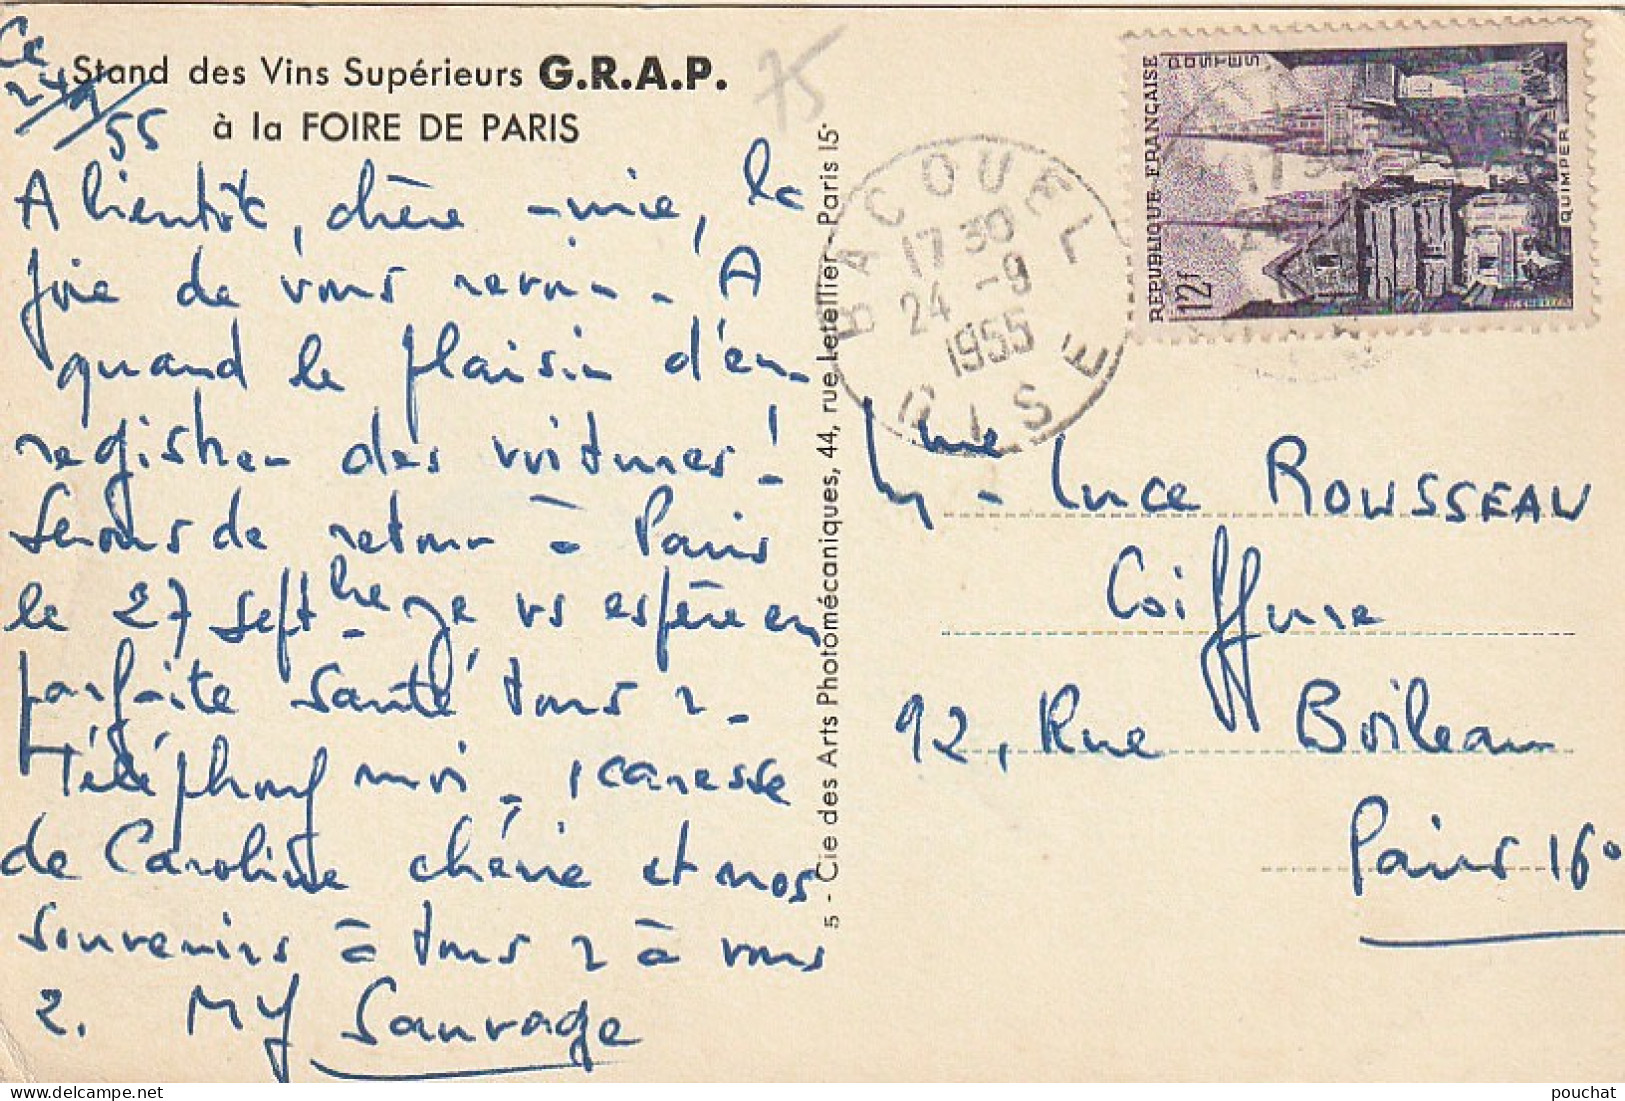 Ce
24/9/55
Stand des Vins Supérieurs G.R.A.P.
à la FOIRE DE PARIS
75
A bientôt, chère amie, la
joie de vous revoir. A
quand le plaisir d'en-
registrer des voitures!
Serons de retour à Paris
le 27 septbre je vs espère en
parfaite santé tous 2.
Téléphonez moi. caresse
de Caroline chérie et nos
souvenirs à tous 2 à vous
2. MY Sauvage
5 - Cie des Arts Photomécaniques, 44, rue Letellier - Paris 15e
BACOUEL
17 30
24 -9
1955
OISE
RÉPUBLIQUE FRANÇAISE
POSTES
12f
QUIMPER
17 30
Mme Luce ROUSSEAU
Coiffure
92, Rue Boileau
Paris 16e
pouchat